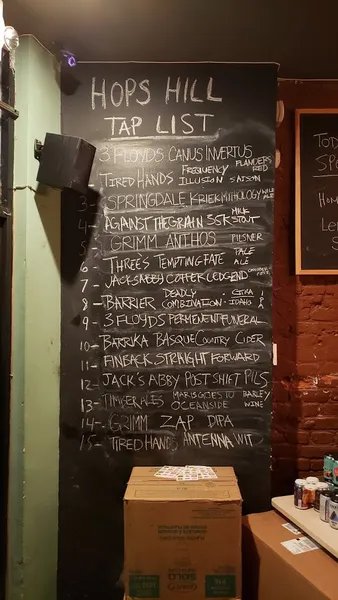 HOPS HILL
TAP LIST
3 FLOYDS CANUS INVERTUS FLANDERS RED
TIRED HANDS FREQUENCY ILLUSION SAISON
3- SPRINGDALE KRIEK MYTHOLOGY
4- AGAINST THE GRAIN 55K MILK STOUT
5- GRIMM ANTHOS PILSNER
6- THREE'S TEMPTING FATE PALE ALE
7- JACKS ABBY COFFEE
8- BARRIER DEADLY COMBINATION CITRA & IDAHO 7
9- 3 FLOYDS PERMENENT FUNERAL
10- BARRIKA BASQUE COUNTRY CIDER
11- FINBACK STRAIGHT FORWARD
12- JACK'S ABBY POST SHIFT PILS
13- TIMBER ALES MARIS GOES TO OCEANSIDE BARLEY WINE
14- GRIMM ZAP DIPA
15- TIRED HANDS ANTENNA WIT
TOD
SP
HOM
LE